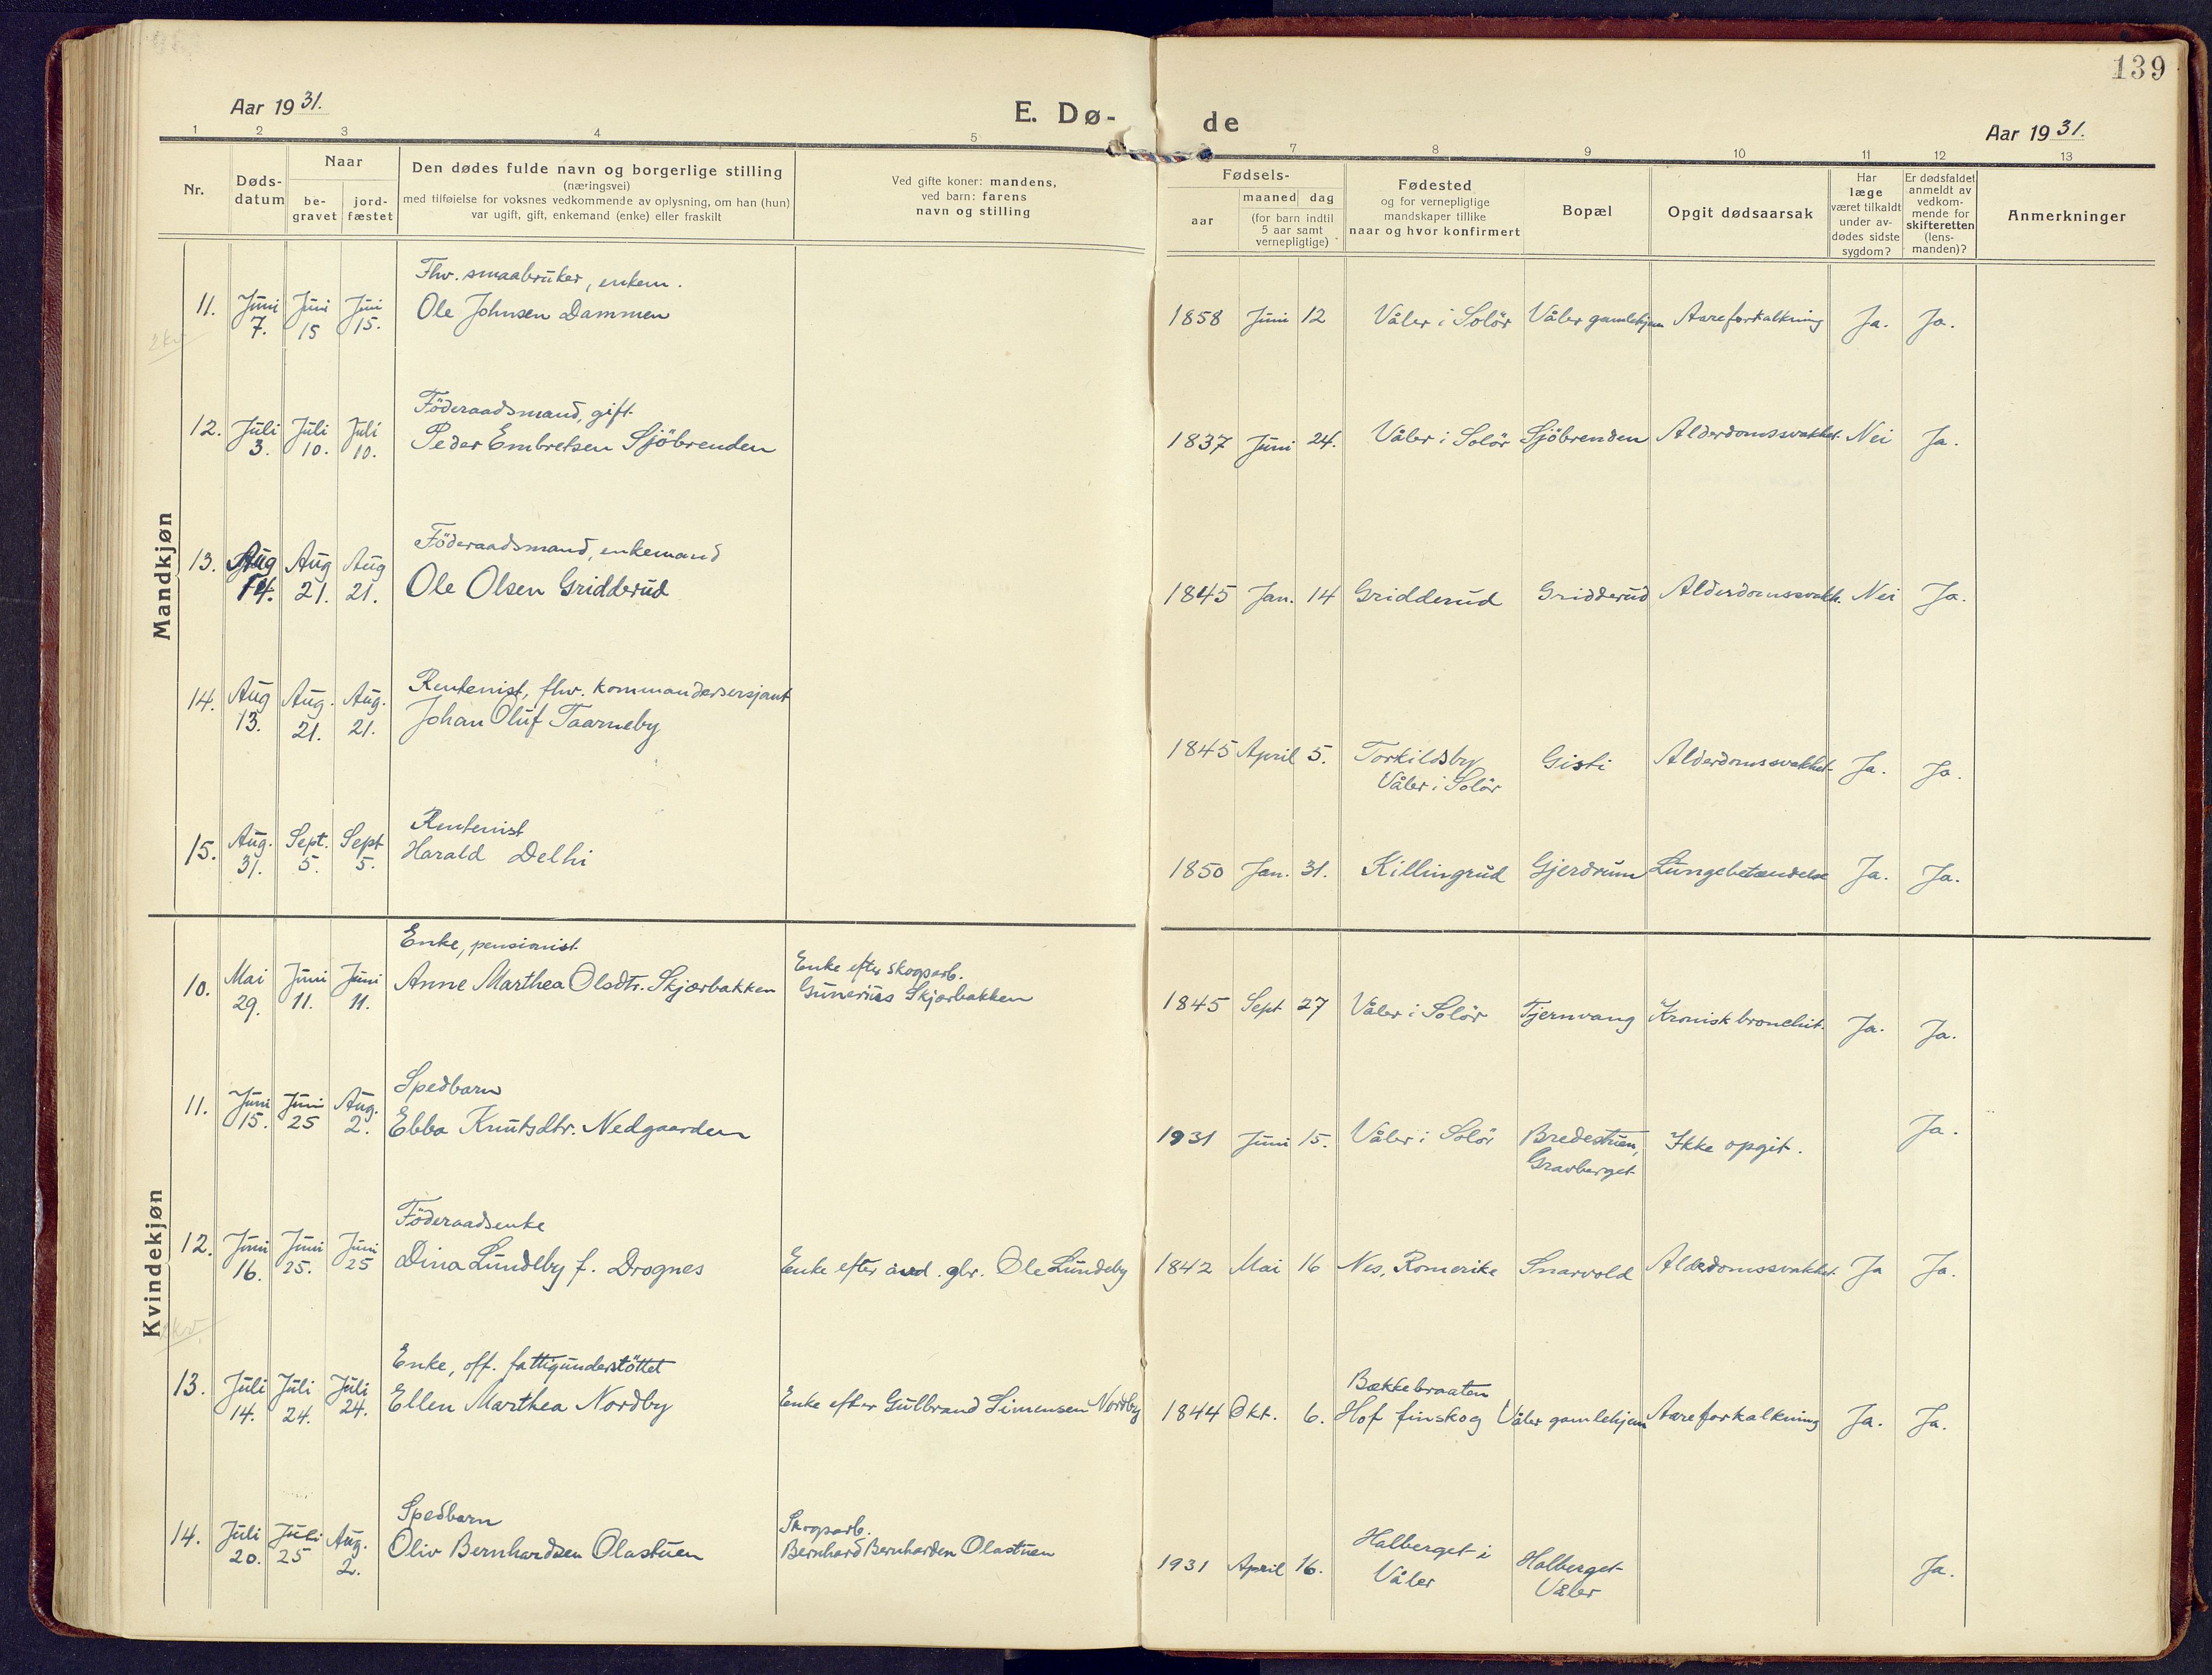 139
Aar 1931.
E. Dø- de
Aar 1931.
1 2 3 4 5 7 8 9 10 11 12 13
Nr.
Døds-
datum
Naar
be-
gravet
jord-
fæstet
Den dødes fulde navn og borgerlige stilling
(næringsvei)
med tilføielse for voksnes vedkommende av oplysning, om han (hun)
var ugift, gift, enkemand (enke) eller fraskilt
Ved gifte koner: mandens,
ved barn: farens
navn og stilling
Fødsels-
aar
maaned dag
(for barn indtil
5 aar samt
vernepligtige)
Fødested
og for vernepligtige
mandskaper tillike
naar og hvor konfirmert
Bopæl
Opgit dødsaarsak
Har
læge
været tilkaldt
under av-
dødes sidste
sygdom?
Er dødsfaldet
anmeldt av
vedkom-
mende for
skifteretten
(lens-
manden)?
Anmerkninger
Mandkjøn
Fhv. smaabruker, enkem.
11. Juni Juni Juni Ole Johnsen Dammen 1858 Juni 12 Våler i Solör Våler gamlehjem Aareforkalkning Ja. Ja.
7. 15 15.
Föderaadsmand, gift.
12. Juli Juli Juli Peder Embretsen Sjöbrenden 1837 Juni 24. Våler i Solör Sjöbrenden Alderdomssvakhet. Nei Ja.
3. 10. 10.
Föderaadsmand, enkemand
13. Aug Aug Aug Ole Olsen Gridderud 1845 Jan. 14 Gridderud Gridderud Alderdomssvakh. Nei Ja.
14. 21. 21.
Rentenist, fhv. kommandersersjant
14. Aug Aug. Aug. Johan Oluf Taarneby 1845 April 5. Torkildsby Gisti Alderdomssvakhet. Ja. Ja.
13. 21. 21. Våler i Solör
Rentenist
15. Aug. Sept. Sept Harald Delhi 1850 Jan. 31. Killingrud Gjerdrum Lungebetændelse Ja. Ja.
31. 5. 5.
Kvindekjøn
Enke, pensionist. Enke efter skogsarb.
10. Mai Juni Juni Anne Marthea Olsdtr. Skjærbakken Gunerius Skjærbakken 1845 Sept 27 Våler i Solör Tjernvang Kronisk bronchit. Ja. Ja.
29. 11. 11.
Spedbarn
11. Juni Juni Aug. Ebba Knutsdtr. Nedgaarden 1931 Juni 15. Våler i Solör Bredestuen, Ikke opgit. Ja.
15. 25 2. Gravberget
Föderaadsenke
12. Juni Juni Juni Dina Lundeby f. Drognes Enke efter avd. gbr. Ole Lundeby 1842 Mai 16 Nes, Romerike Snarvold Alderdomssvakhet. Ja Ja.
16. 25. 25
Enke, off. fattigunderstöttet Bækkebraaten
13. Juli Juli Juli Ellen Marthea Nordby Enke efter Gulbrand Simensen Nordby 1844 Okt. 6. Hof finskog Våler gamlehjem Aareforkalkning Ja. Ja.
14. 24. 24.
Spedbarn Skogsarb.
14. Juli Juli Aug. Oliv Bernhardsen Olastuen Bernhard Bernharden Olastuen 1931 April 16. Halberget i Halberget Ja.
20. 25 2. Våler Våler